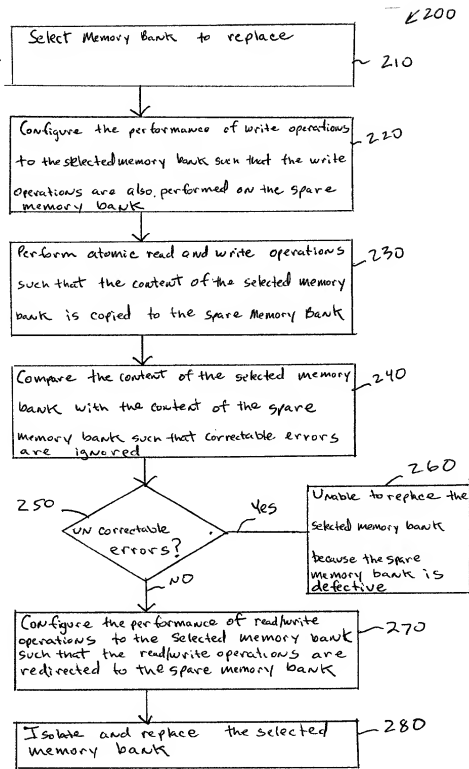 200
Select Memory Bank to replace
210
Configure the performance of write operations
to the selected memory bank such that the write
operations are also performed on the spare
memory bank
220
Perform atomic read and write operations
such that the content of the selected memory
bank is copied to the spare Memory Bank
230
Compare the content of the selected memory
bank with the content of the spare
memory bank such that correctable errors
are ignored
240
250
uncorrectable
errors?
Yes
NO
260
Unable to replace the
selected memory bank
because the spare
memory bank is
defective
Configure the performance of read/write
operations to the selected memory bank
such that the read/write operations are
redirected to the spare memory bank
270
Isolate and replace the selected
memory bank
280